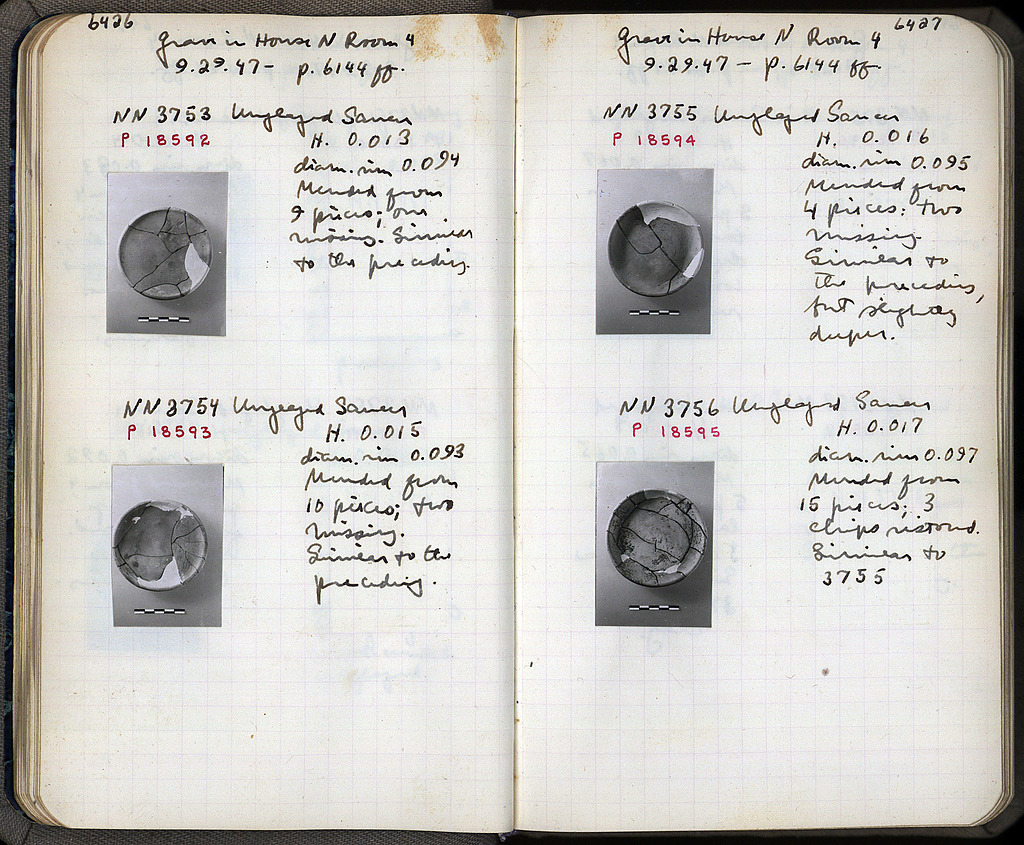 6426
Grave in House N Room 4
9.29.47 - p. 6144 ff.
NN 3753 Unglazed Saucer
P 18592
H. 0.013
diam. rim 0.094
Mended from
9 pieces; one
missing. Similar
to the preceding.
NN 3754 Unglazed Saucer
P 18593
H. 0.015
diam. rim 0.093
Mended from
10 pieces; two
missing.
Similar to the
preceding.
6427
Grave in House N Room 4
9.29.47 - p. 6144 ff.
NN 3755 Unglazed Saucer
P 18594
H. 0.016
diam. rim 0.095
Mended from
4 pieces: two
missing.
Similar to
the preceding,
but slightly
deeper.
NN 3756 Unglazed Saucer
P 18595
H. 0.017
diam. rim 0.097
Mended from
15 pieces; 3
chips restored.
Similar to
3755